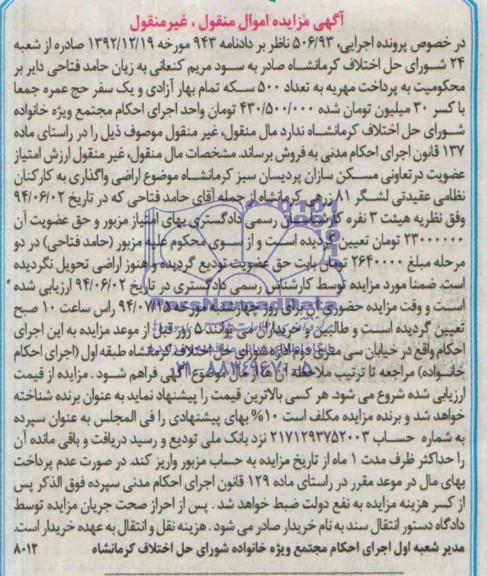 آگهی مزایده اموال منقول ، غیرمنقول
در خصوص پرونده اجرایی، ۵۰۶/۹۳ ناظر بر دادنامه ۹۴۳ مورخه ۱۳۹۲/۱۲/۱۹ صادره از شعبه
۲۴ شورای حل اختلاف کرمانشاه صادر به سود مریم کنعانی به زیان حامد فتاحی دایر بر
محکومیت به پرداخت مهریه به تعداد ۵۰۰ سکه تمام بهار آزادی و یک سفر حج عمره جمعا
با کسر ۳۰ میلیون تومان شده ۴۳۰/۵۰۰/۰۰۰ تومان واحد اجرای احکام مجتمع ویژه خانواده
شورای حل اختلاف کرمانشاه ندارد مال منقول، غیر منقول موصوف ذیل را در راستای ماده
۱۳۷ قانون اجرای احکام مدنی به فروش برساند. مشخصات مال منقول، غیر منقول ارزش امتیاز
عضویت در تعاونی مسکن سازان پردیسان سبز کرمانشاه موضوع اراضی واگذاری به کارکنان
نظامی عقیدتی لشگر ۸۱ زرهی کرمانشاه از جمله آقای حامد فتاحی که در تاریخ ۹۴/۰۶/۰۲
وفق نظریه هیئت ۳ نفره کارشناسان رسمی دادگستری بهای امتیاز مزبور و حق عضویت آن
۲۳۰۰۰۰۰۰ تومان تعیین گردیده است و از سوی محکوم علیه مزبور (حامد فتاحی) در دو
مرحله مبلغ ۲۶۴۰۰۰۰ تومان بابت حق عضویت تودیع گردیده و هنوز اراضی تحویل نگردیده
است. ضمنا مورد مزایده توسط کارشناس رسمی دادگستری در تاریخ ۹۴/۰۶/۰۲ ارزیابی شده
است و وقت مزایده حضوری آن برای روز چهارشنبه مورخه ۹۴/۰۷/۱۵ راس ساعت ۱۰ صبح
تعیین گردیده است و طالبین و خریداران می توانند ۵ روز قبل از موعد مزایده به این اجرای
احکام واقع در خیابان سی متری دوم اداره شورای حل اختلاف کرمانشاه طبقه اول (اجرای احکام
خانواده) مراجعه تا ترتیب ملاحظه آن ها از مال موضوع آگهی فراهم شود . مزایده از قیمت
ارزیابی شده شروع می شود. هر کسی بالاترین قیمت را پیشنهاد نماید به عنوان برنده شناخته
خواهد شد و برنده مزایده مکلف است ۱۰% بهای پیشنهادی را فی المجلس به عنوان سپرده
به شماره حساب ۲۱۷۱۲۹۳۷۵۲۰۰۳ نزد بانک ملی تودیع و رسید دریافت و باقی مانده آن
را حداکثر ظرف مدت ۱ ماه از تاریخ مزایده به حساب مزبور واریز کند. در صورت عدم پرداخت
بهای مال در موعد مقرر در راستای ماده ۱۲۹ قانون اجرای احکام مدنی سپرده فوق الذکر پس
از کسر هزینه مزایده به نفع دولت ضبط خواهد شد . پس از احراز صحت جریان مزایده توسط
دادگاه دستور انتقال سند به نام خریدار صادر می شود . هزینه نقل و انتقال به عهده خریدار است.
مدیر شعبه اول اجرای احکام مجتمع ویژه خانواده شورای حل اختلاف کرمانشاه ۸۰۱۲
ParsNamadData
۰۲۱-۸۸۳۴۹۶۷۰-۵